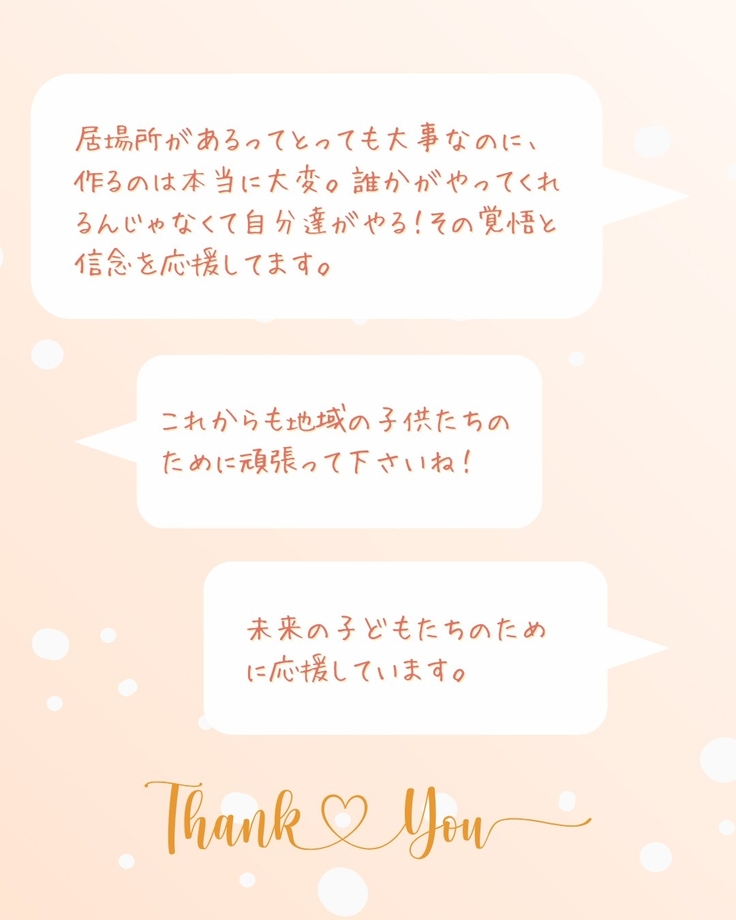 居場所があるってとっても大事なのに、
作るのは本当に大変。誰かがやってくれ
るんじゃなくて自分達がやる！その覚悟と
信念を応援してます。
これからも地域の子供たちの
ために頑張って下さいね！
未来の子どもたちのため
に応援しています。
Thank You